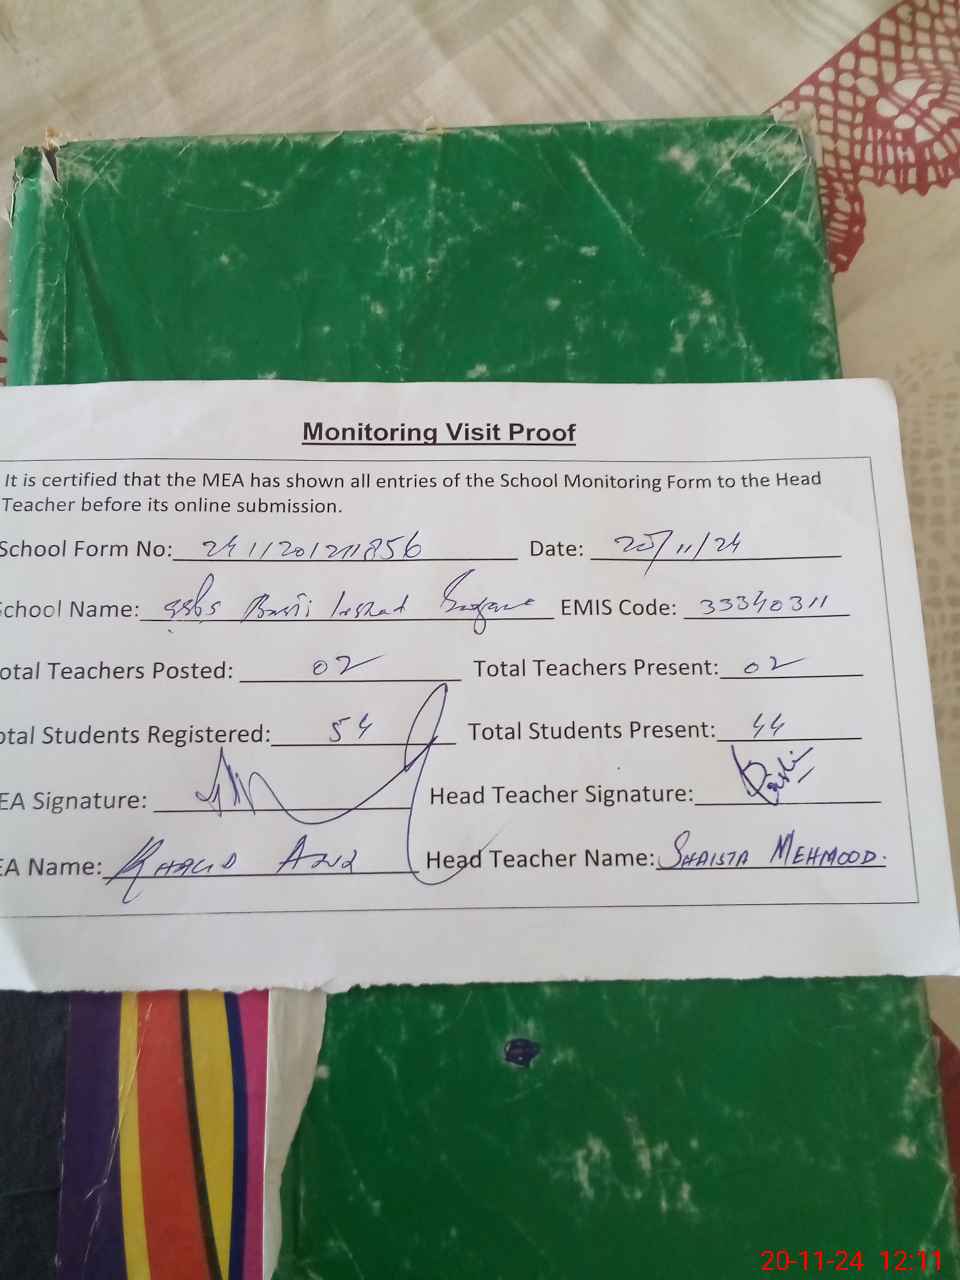 Monitoring Visit Proof
It is certified that the MEA has shown all entries of the School Monitoring Form to the Head
Teacher before its online submission.
School Form No: 241120121856 Date: 20/11/24
School Name: Basti Irshad EMIS Code: 33340311
otal Teachers Posted: 02 Total Teachers Present: 02
otal Students Registered: 54 Total Students Present: 44
EA Signature: Head Teacher Signature:
EA Name: KHALID AZIZ Head Teacher Name: SHAISTA MEHMOOD.
20-11-24 12:11